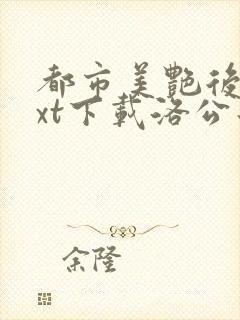 都市美艷後
xt下載洛公
余隆